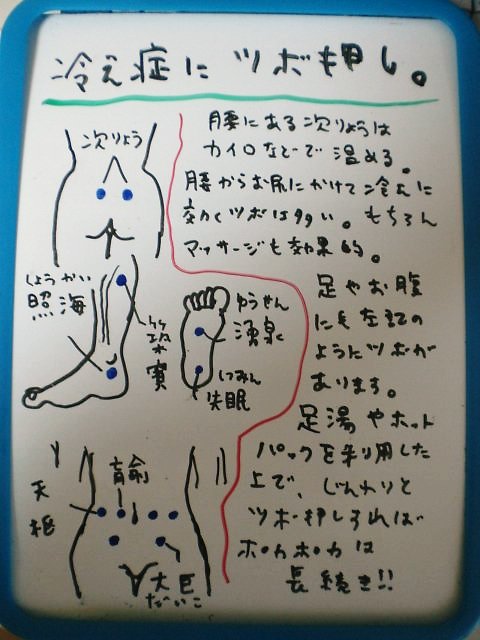 冷え症にツボ押し。
次りょう
腰にある次りょうは
カイロなどで温める。
腰からお尻にかけて冷えに
効くツボは多い。もちろん
マッサージも効果的。
しょうかい
照海
築賓
ゆうせん
湧泉
しつみん
失眠
足やお腹
にも左記の
ようにツボが
あります。
足湯やホット
パックを利用した
上で、じんわりと
ツボ押しすれば
ホカホカは
長続き!!
天枢
肓兪
大巨
だいこ